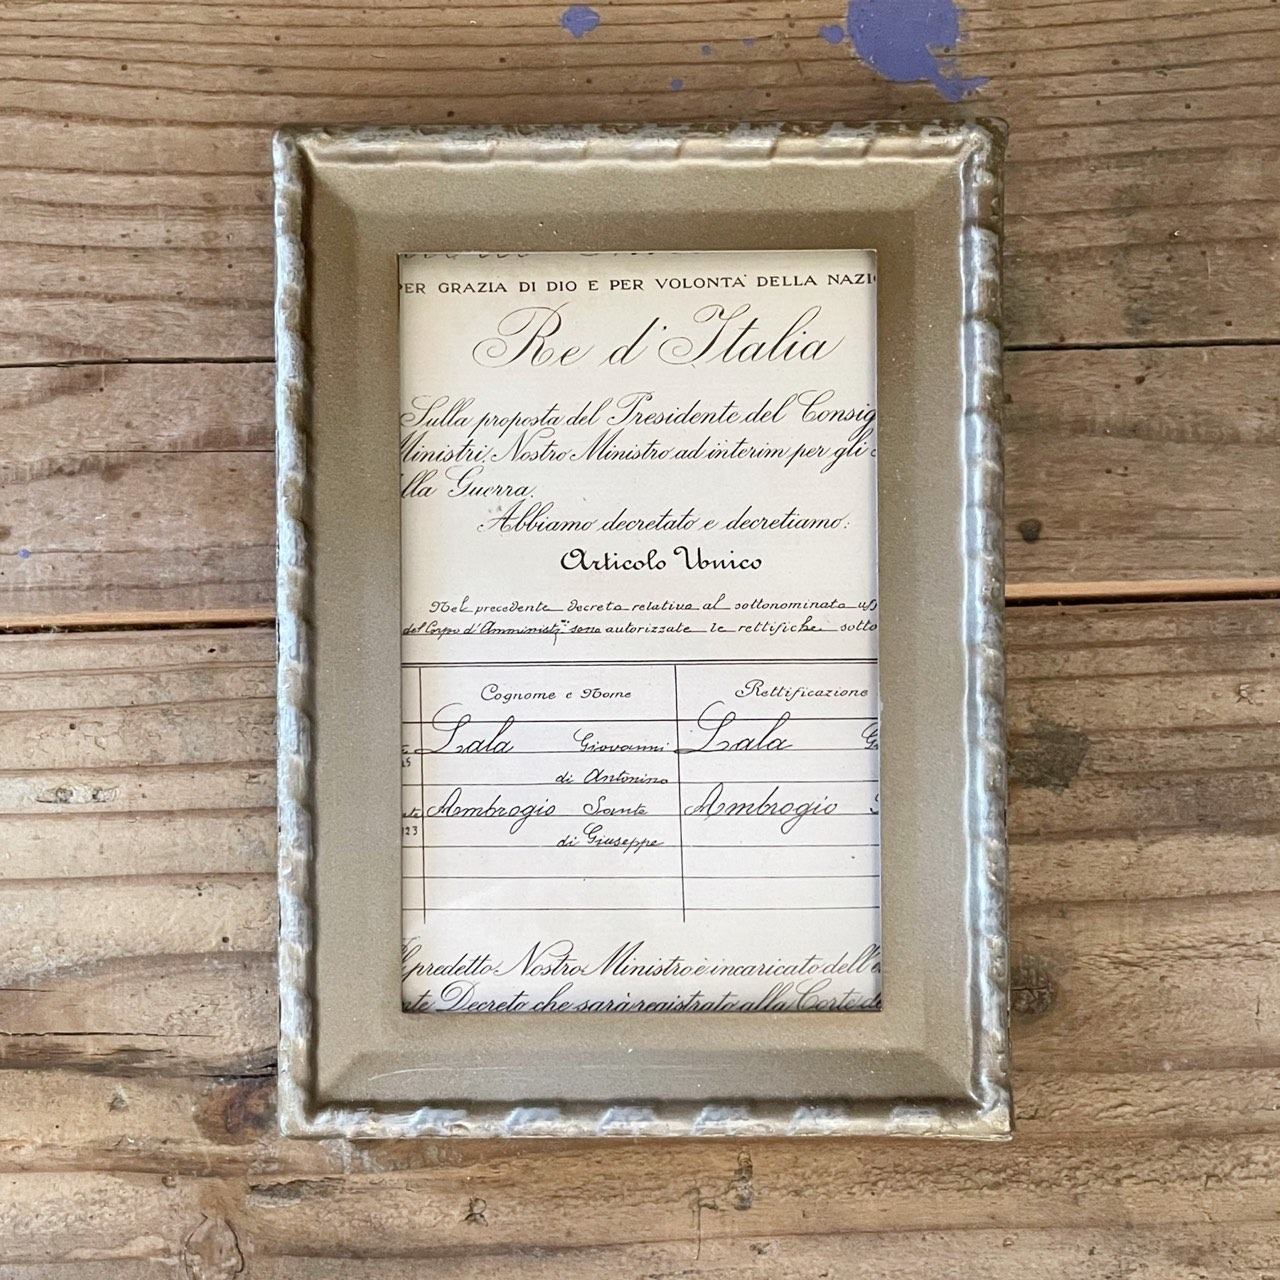 PER GRAZIA DI DIO E PER VOLONTA' DELLA NAZI
Re d'Italia
Sulla proposta del Presidente del Consig
Ministri, Nostro Ministro ad interim per gli
lla Guerra.
Abbiamo decretato e decretiamo:
Articolo Unico
Nel precedente decreto relativo al sottonominato uff
del Corpo d'Amministr.ne sono autorizzate le rettifiche sotto
Cognome e Nome Rettificazione
Lala Giovanni Lala G
15 di Antonino
Ambrogio Sante Ambrogio S
123 di Giuseppe
Il predetto Nostro Ministro è incaricato dell'e
te Decreto che sarà registrato alla Corte de